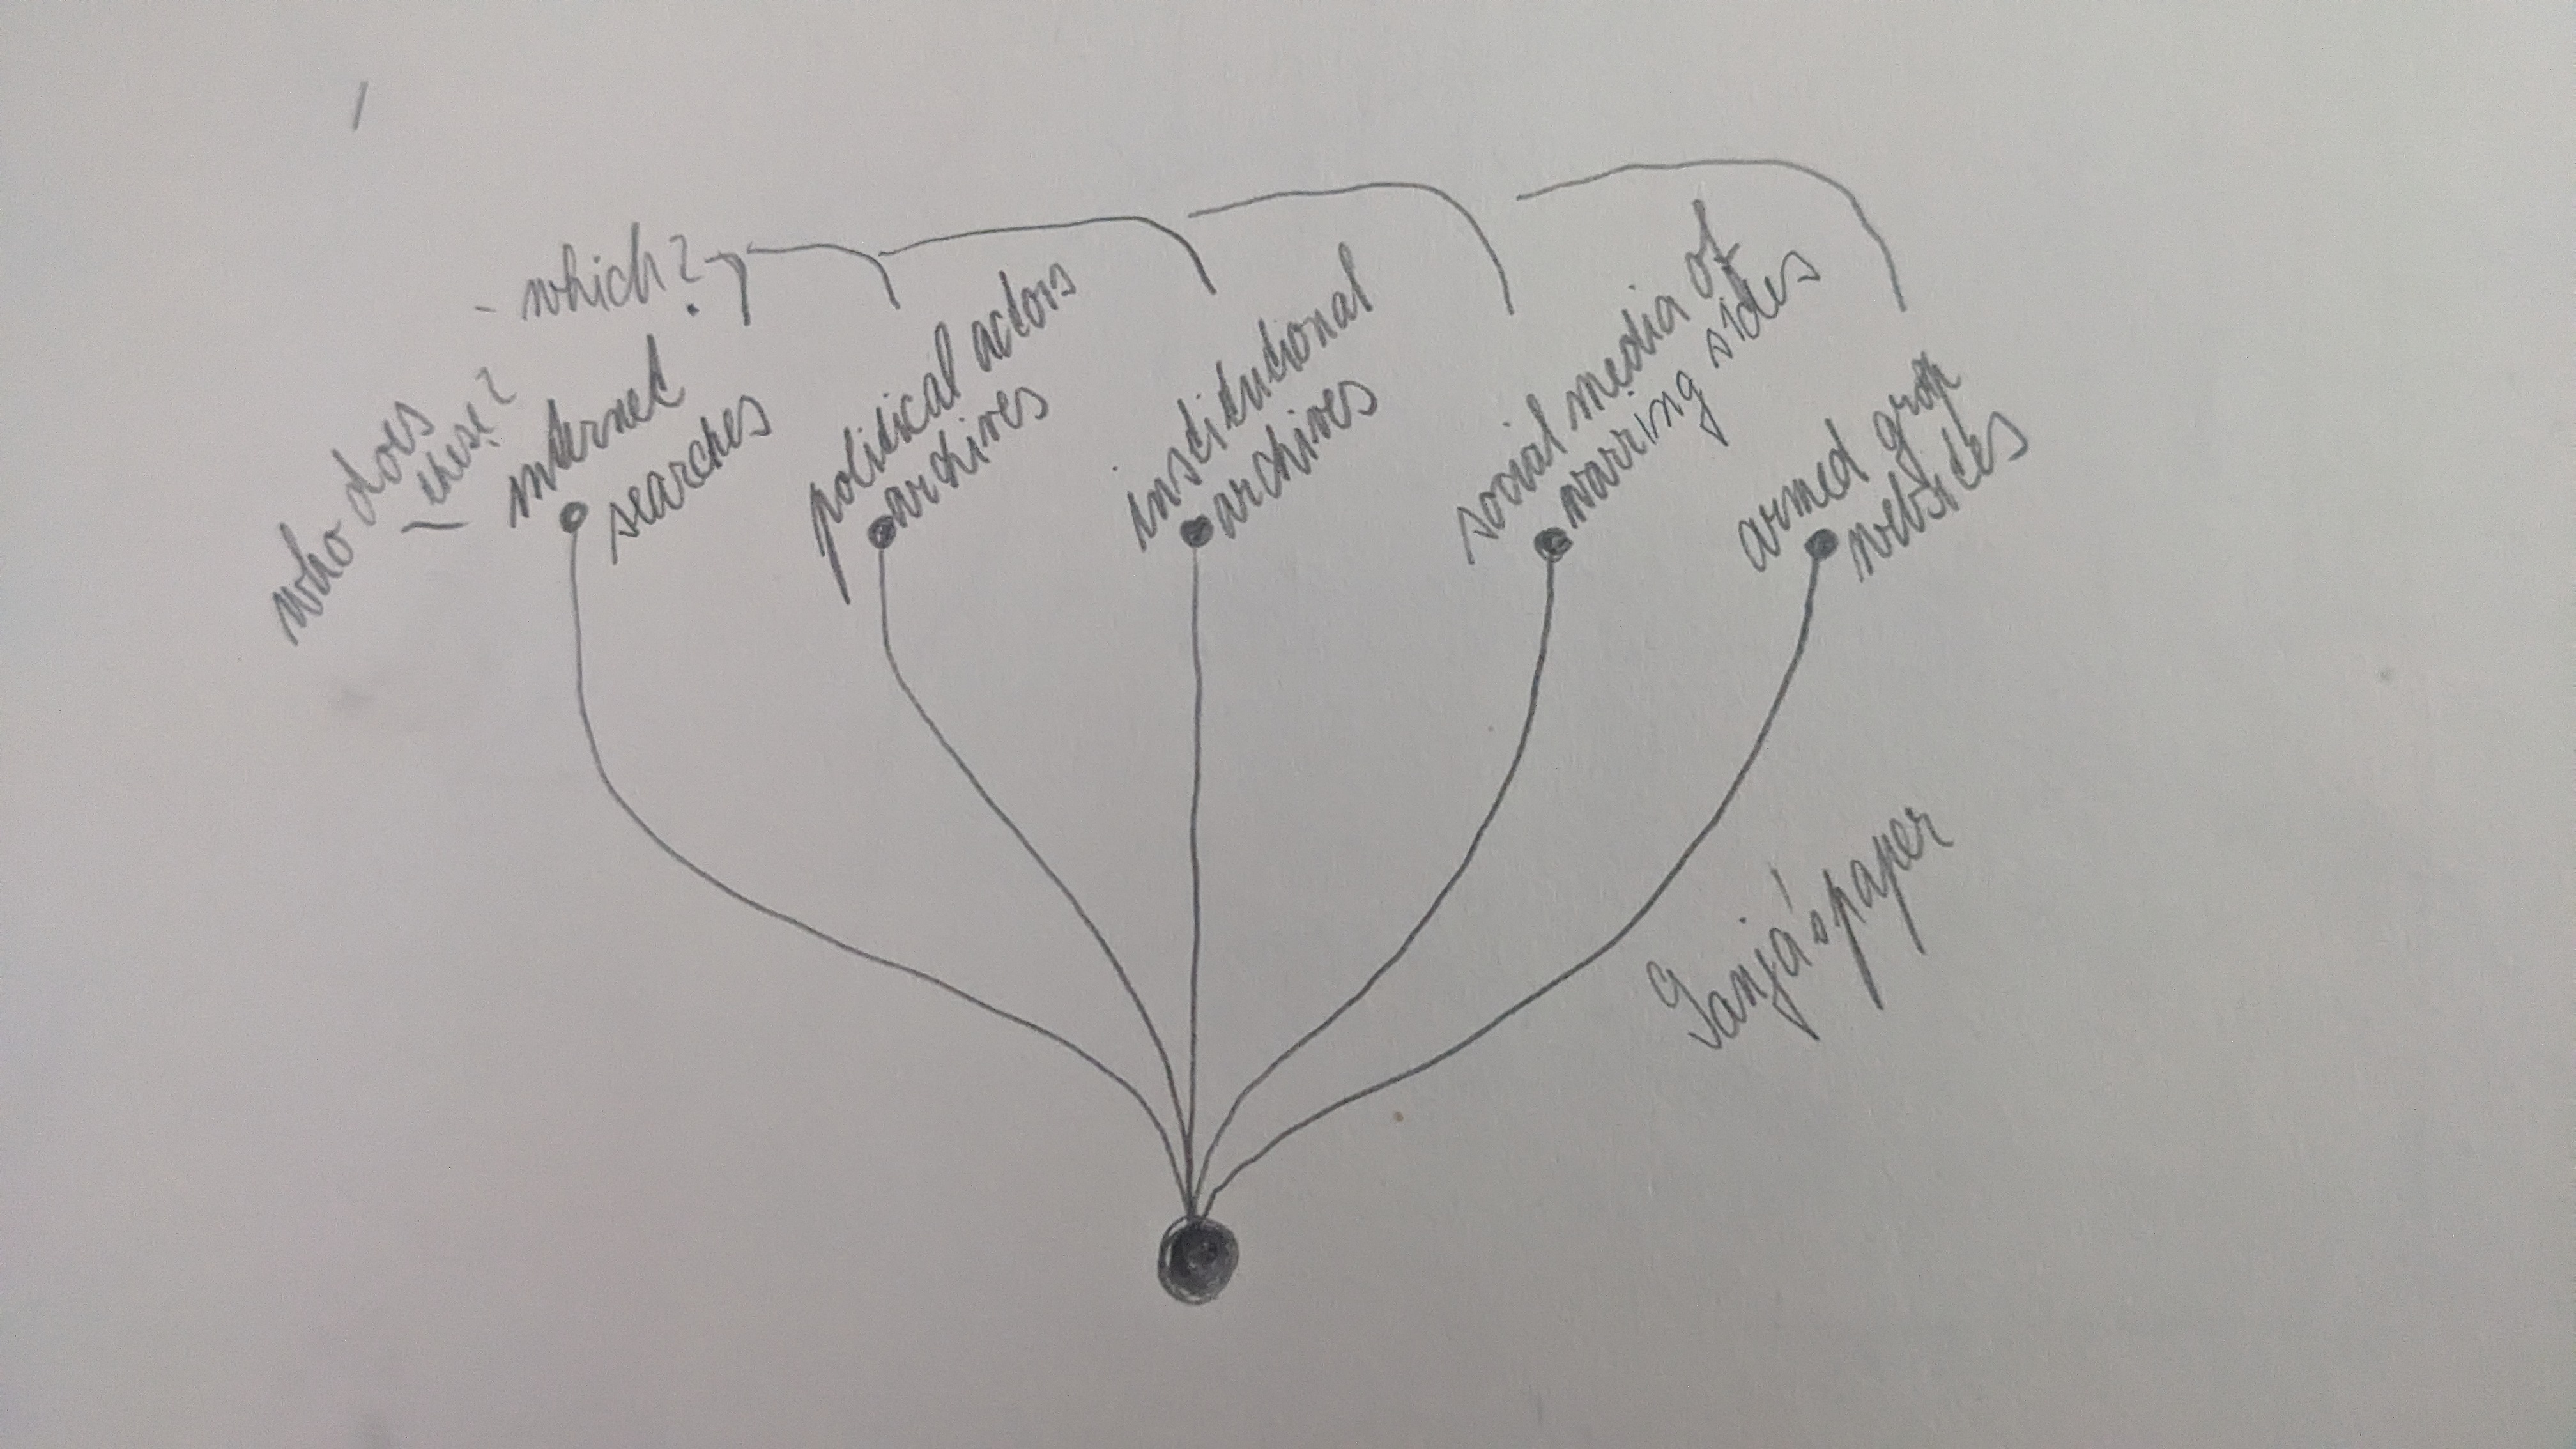 - which?
who does
these?
internet
searches
political actors
archives
institutional
archives
social media of
warring sides
armed group
websites
Tanja's paper